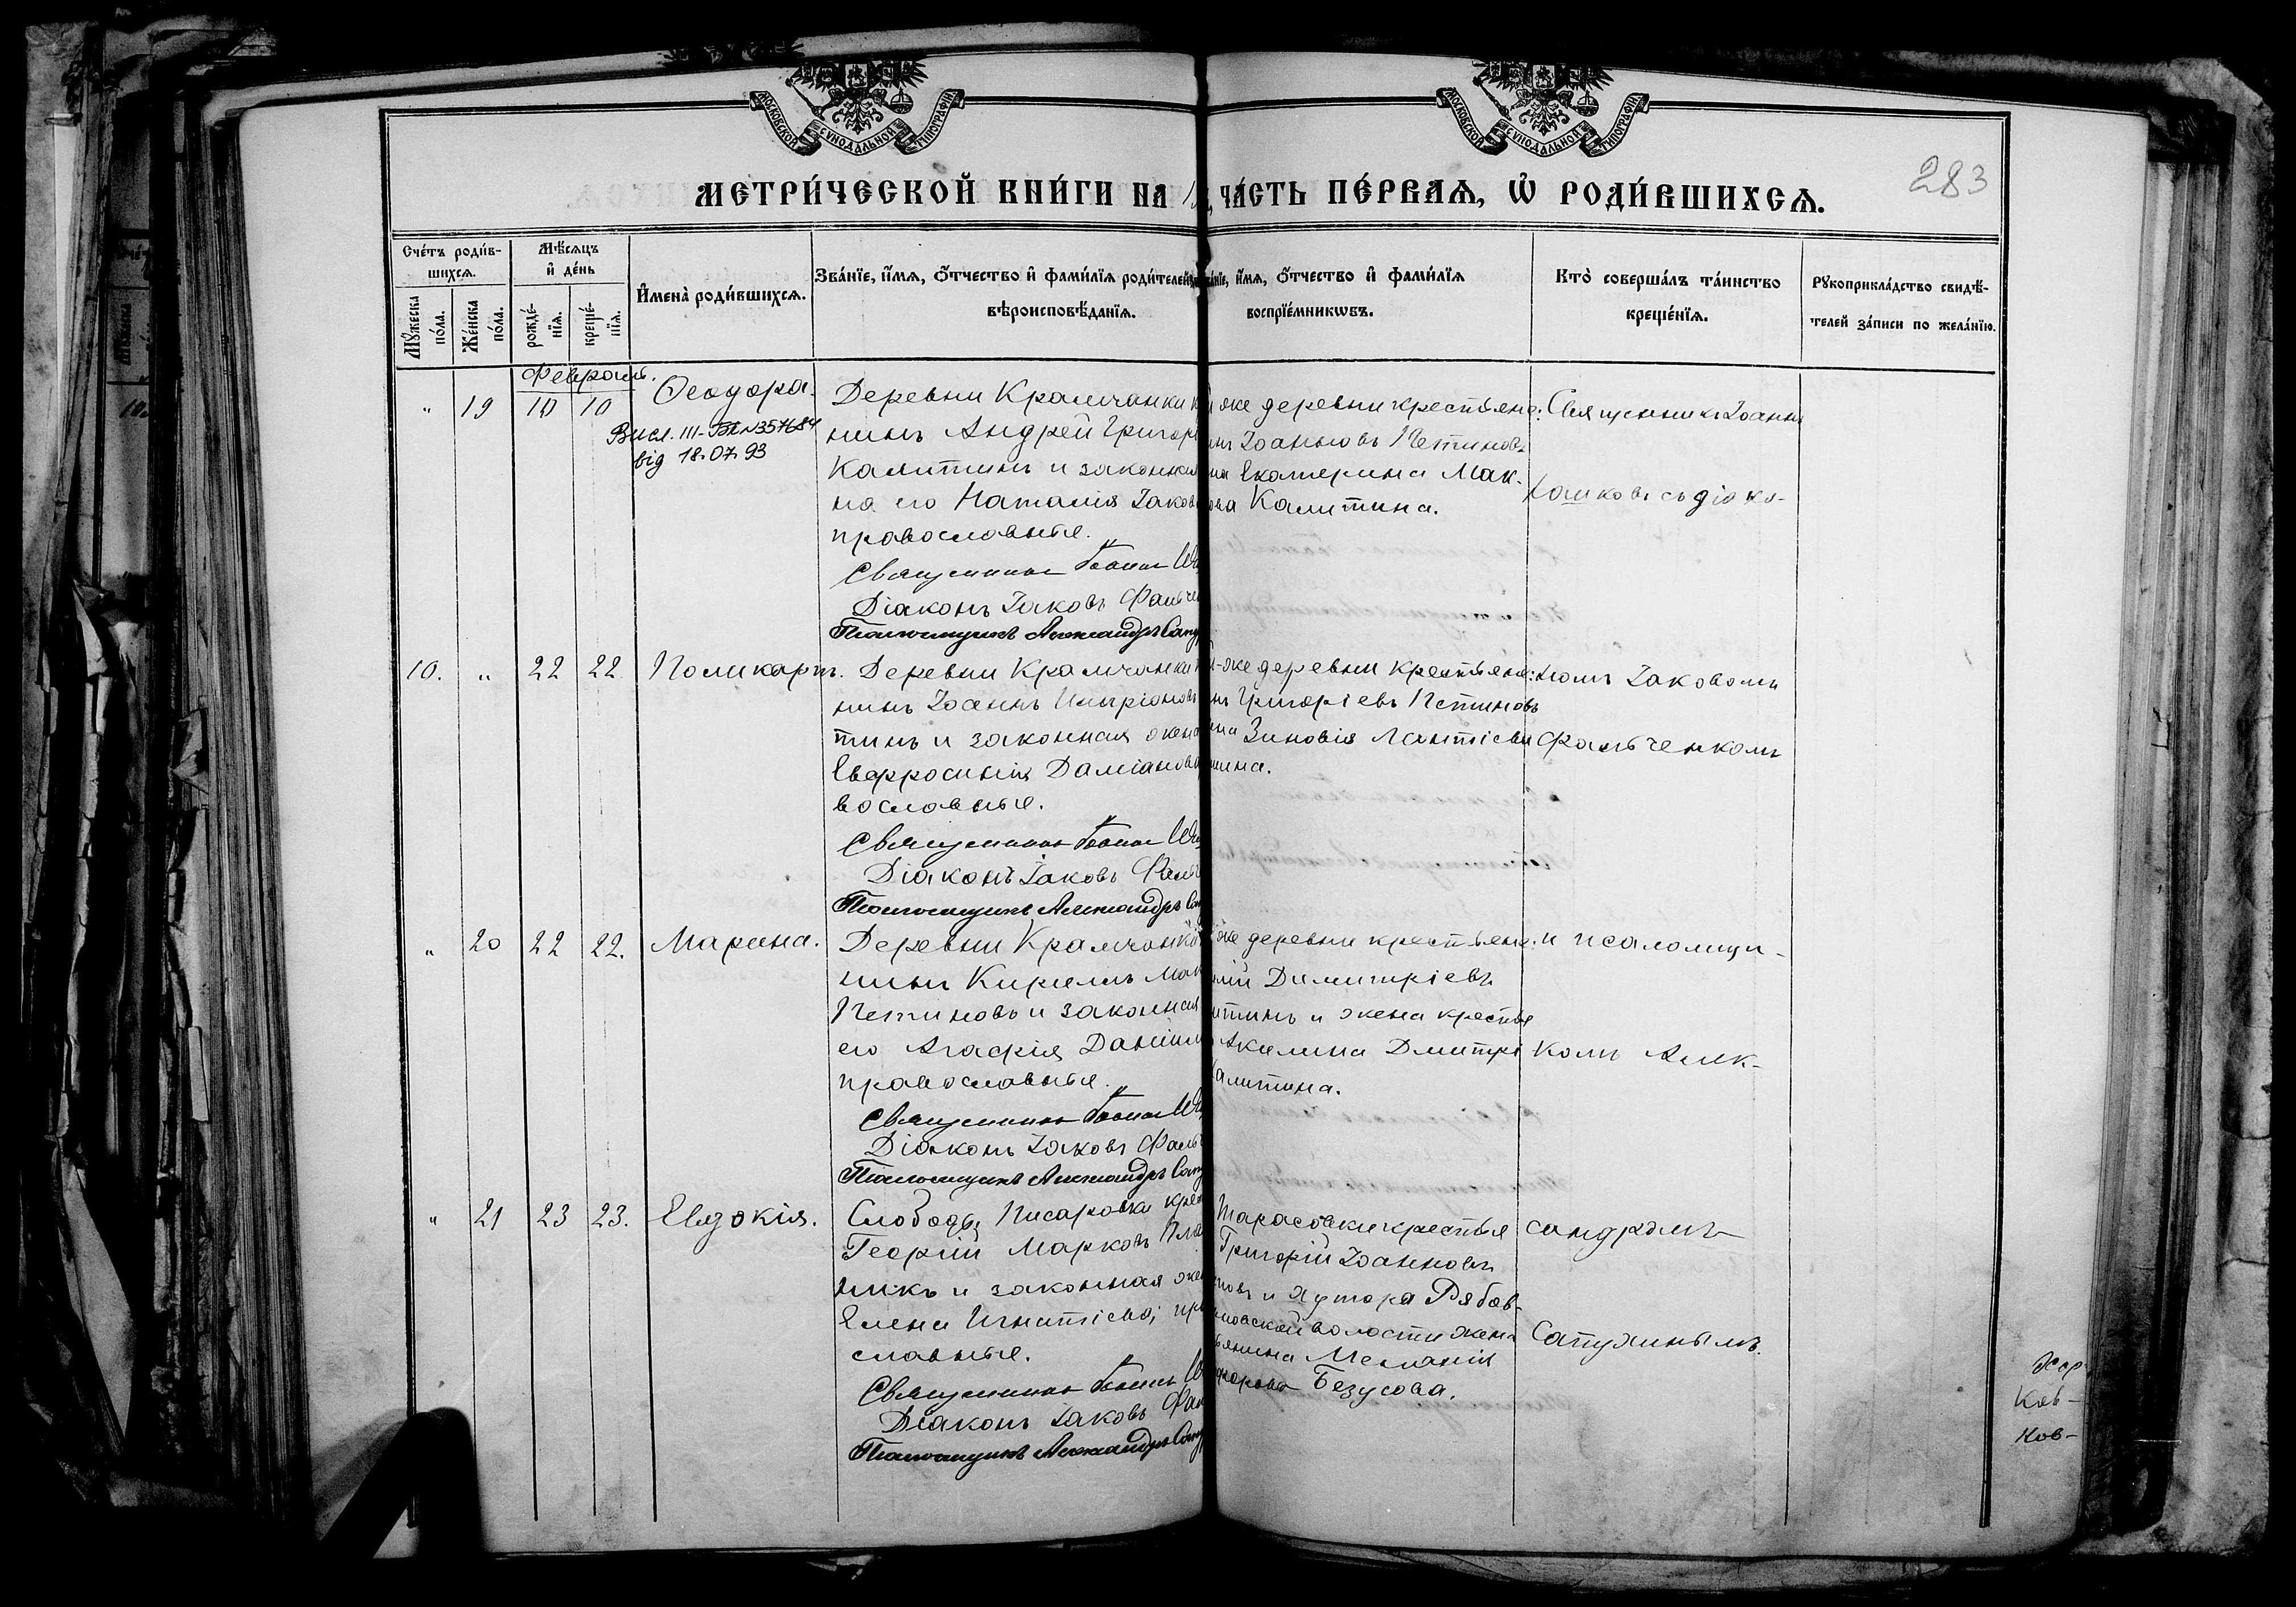 МОСКОВСКОЙ СѴНОДАЛЬНОЙ ТИПОГРАФІИ
МОСКОВСКОЙ СѴНОДАЛЬНОЙ ТИПОГРАФІИ
283
МЕТРИ́ЧЕСКОЙ КНИ́ГИ НА 1 ЧА́СТЬ ПЕ́РВАѦ, Ѡ҆ РОДИ́ВШИХСѦ.
Сче́тъ роди́в-
шихсѧ.
Мꙋ́жеска по́ла.
Же́нска по́ла.
Мѣ́сяцъ
и҆ де́нь
рожде́-
нїѧ.
креще́-
нїѧ.
И҆мена̀ роди́вшихсѧ.
Зва́нїе, и҆́мѧ, о҆́тчество и҆ фами́лїѧ роди́телей
вѣроисповѣ́данїѧ.
и҆́мѧ, о҆́тчество и҆ фами́лїѧ
воспрїе́мникѡвъ.
Кто̀ соверша́лъ та́инство
креще́нїѧ.
Рꙋкоприкла́дство свидѣ́-
телей за́писи по жела́нїю.
Февраль.
" 19 10 10 Ѳеодора.
Висл. III-БК №357684
від 18.07.93
Деревни Крамчанки
нинъ Андрей Григор
Калитинъ и законная
на его Наталія Іаков
православные.
Священникъ Іоаннъ
Діаконъ Іаковъ Фальче
Псаломщикъ Александръ Сапу
же деревни крестьяне:
Іоанновъ Петиновъ
на Екатерина Мак-
ова Калитина.
Священникъ Іоаннъ
съ діако-
10. " 22 22 Поликарпъ.
Деревни Крамчанки
нинъ Іоаннъ Иларіоновъ
тинъ и законная жена
Евфросинія Даміанова
вославные.
Священникъ Іоаннъ
Діаконъ Іаковъ Фаль
Псаломщикъ Александръ Сап
же деревни крестьяне:
Григоріевъ Петиновъ
Зиновія Лантіева
шина.
номъ Іаковомъ
Фальченкомъ
" 20 22 22. Марина.
Деревни Крамчанки
нинъ Кириллъ Мак
Петиновъ и законная
его Агафія Даніил
православные.
Священникъ Іоаннъ
Діаконъ Іаковъ Фаль
Псаломщикъ Александръ Сапу
же деревни крестьяне:
Димитріевъ
итинъ и жена крестья
Акилина Дмитрі
алитина.
и псаломщи-
комъ Алек-
" 21 23 23. Евдокія.
Слободы Писаровки кре
Георгій Марковъ Пла
никъ и законная же
Елена Игнатіева; пр
славные.
Священникъ Іоаннъ
Діаконъ Іаковъ Фал
Псаломщикъ Александръ Сапу
Тарасовки крестья
Григорій Іоанновъ
новъ и хутора Рябов-
новской волости жена
янина Меланія
форова Безусова.
сандромъ
Сапухинымъ.
Ков-
ков-